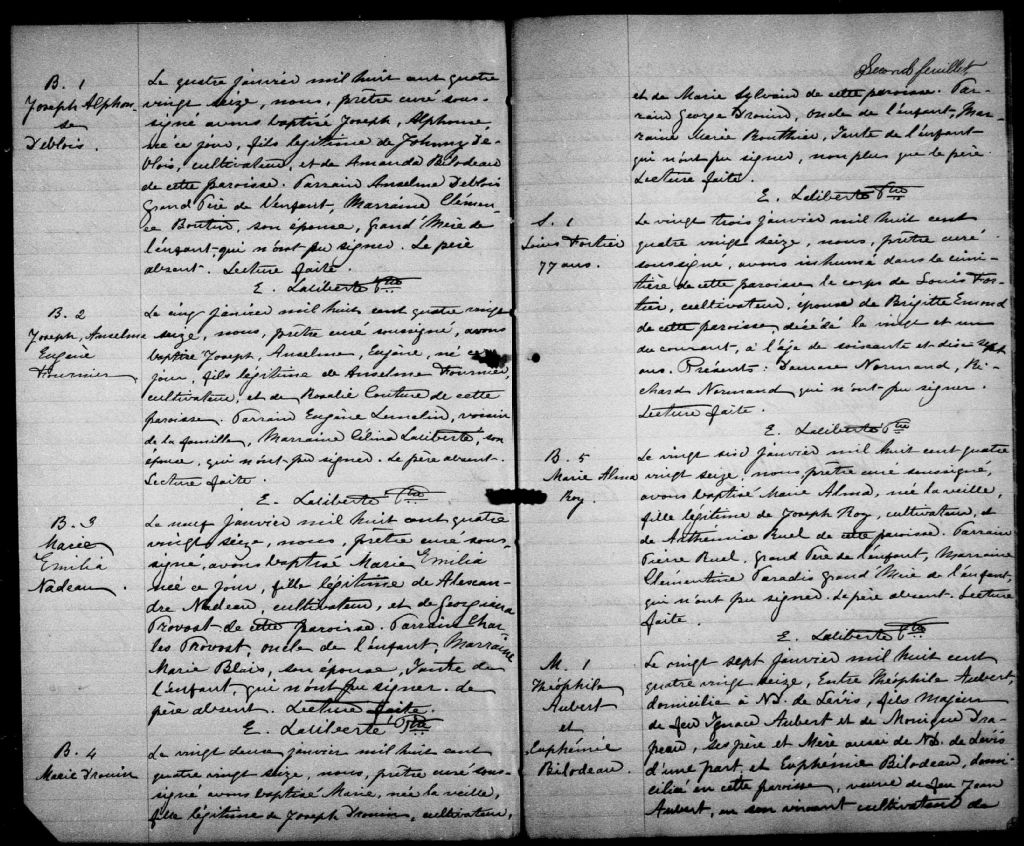 B. 1
Joseph Alphon-
se
Deblois.
Le quatre janvier mil huit cent quatre
vingt seize, nous, prêtre curé sous-
signé avons baptisé Joseph, Alphonse
né ce jour, fils légitime de Johnny Dé-
blois, cultivateur, et de Amanda Bilodeau
de cette paroisse. Parrain Anselme Deblois
Grand Père de l'enfant, Marraine Clémen-
ce Boutin, son épouse, Grand'Mère de
l'enfant qui n'ont pu signer. Le père
absent. Lecture faite.
E. Laliberté Ptre
B. 2
Joseph, Anselme
Eugène
Fournier
Le cinq janvier mil huit cent quatre vingt
seize, nous, prêtre curé soussigné, avons
baptisé Joseph, Anselme, Eugène, né ce
jour, fils légitime de Anselme Fournier,
cultivateur, et de Rosalie Couture de cette
paroisse. Parrain Eugène Lemelin, voisin
de la famille, Marraine Célina Laliberté, son
épouse, qui n'ont pu signer. Le père absent.
Lecture faite.
E. Laliberté Ptre
B. 3
Marie
Emilia
Nadeau.
Le neuf janvier mil huit cent quatre
vingt seize, nous, prêtre curé sous-
signé, avons baptisé Marie Emilia
née ce jour, fille légitime de Alexan-
dre Nadeau, cultivateur, et de Georgiana
Provost de cette paroisse. Parrain Char-
les Provost, oncle de l'enfant, Marraine
Marie Blais, son épouse, Tante de
l'enfant, qui n'ont pu signer. Le
père absent. Lecture faite.
E. Laliberté Ptre
B. 4
Marie Drouin
Le vingt deux janvier mil huit cent
quatre vingt seize, nous, prêtre curé sous-
signé avons baptisé Marie, née la veille,
fille légitime de Joseph Drouin, cultivateur,
Second feuillet
et de Marie Sylvain de cette paroisse. Par-
rain George Drouin, oncle de l'enfant, Mar-
raine Marie Bouthier, Tante de l'enfant
qui n'ont pu signer, non plus que le père.
Lecture faite.
E. Laliberté Ptre
S. 1
Louis Fortier
77 ans.
Le vingt trois janvier mil huit cent
quatre vingt seize, nous, prêtre curé
soussigné, avons inhumé dans le cime-
tière de cette paroisse le corps de Louis For-
tier, cultivateur, épouse de Brigitte Emond
de cette paroisse, décédé le vingt et un
du courant, à l'âge de soixante et dix sept
ans. Présents: Damase Normand, Ri-
chard Normand qui n'ont pu signer.
Lecture faite.
E. Laliberté Ptre
B. 5
Marie Alma
Roy
Le vingt six janvier mil huit cent quatre
vingt seize, nous, prêtre curé soussigné,
avons baptisé Marie Alma, née la veille,
fille légitime de Joseph Roy, cultivateur, et
de Anthémise Ruel de cette paroisse. Parrain
Pierre Ruel, Grand Père de l'enfant, Marraine
Clementine Paradis Grand'Mère de l'enfant,
qui n'ont pu signer. Le père absent. Lecture
faite.
E. Laliberté Ptre
M. 1
Théophile
Aubert
et
Euphémie
Bilodeau.
Le vingt sept janvier mil huit cent
quatre vingt seize, Entre Théophile Aubert,
domicilié à N.D. de Lévis, fils majeur
de feu Ignace Aubert et de Monique Dra-
peau, ses père et Mère aussi de N.D. de Lévis
d'une part, et Euphémie Bilodeau, domi-
ciliée en cette paroisse, veuve de feu Jean
Aubert, en son vivant cultivateur de